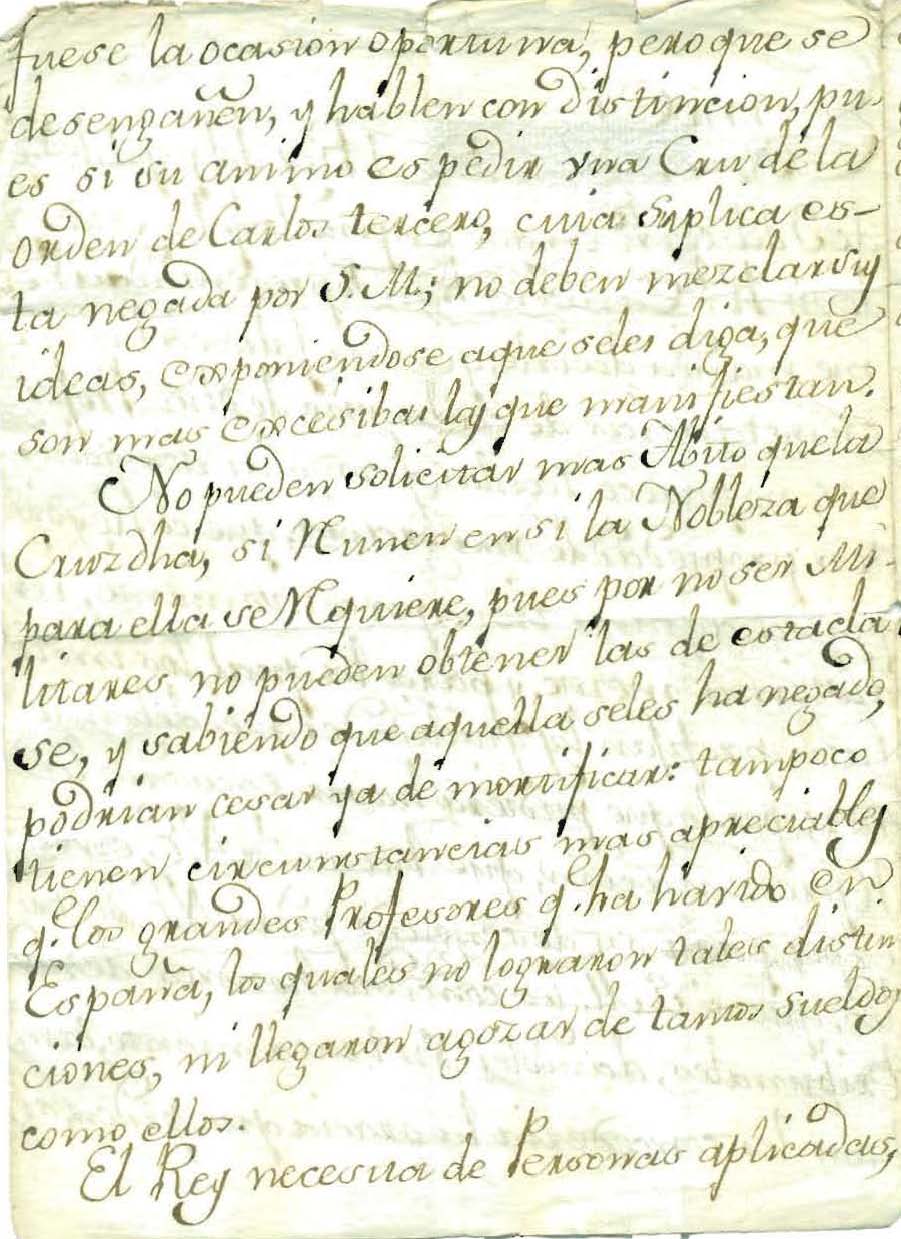 fuese la ocasion oportuna, pero que se
desengañen, y hablen con distincion, pu-
es si su animo es pedir vna Cru de la
Orden de Carlos tercero, cuia suplica es-
ta negada por S. M.; no deben mezclar sus
ideas, exponiendose a que seles diga, que
son mas excesibas las que manifiestan.
No pueden solicitar mas Abito que la
Cruz dha, si Runen en si la Nobleza que
para ella se Rquiere, pues por no ser Mi-
litares no pueden obtener las de esta cla
se, y sabiendo que aquella seles ha negado,
podrian cesar ya de mortificar: tampoco
tienen circunstancias mas apreciables
q.e los grandes Profesores q.e ha havido en
España, los quales no lograron tales distin
ciones, ni llegaron a gozar de tantos sueldos
como ellos.
El Rey necesita de Personas aplicadas,